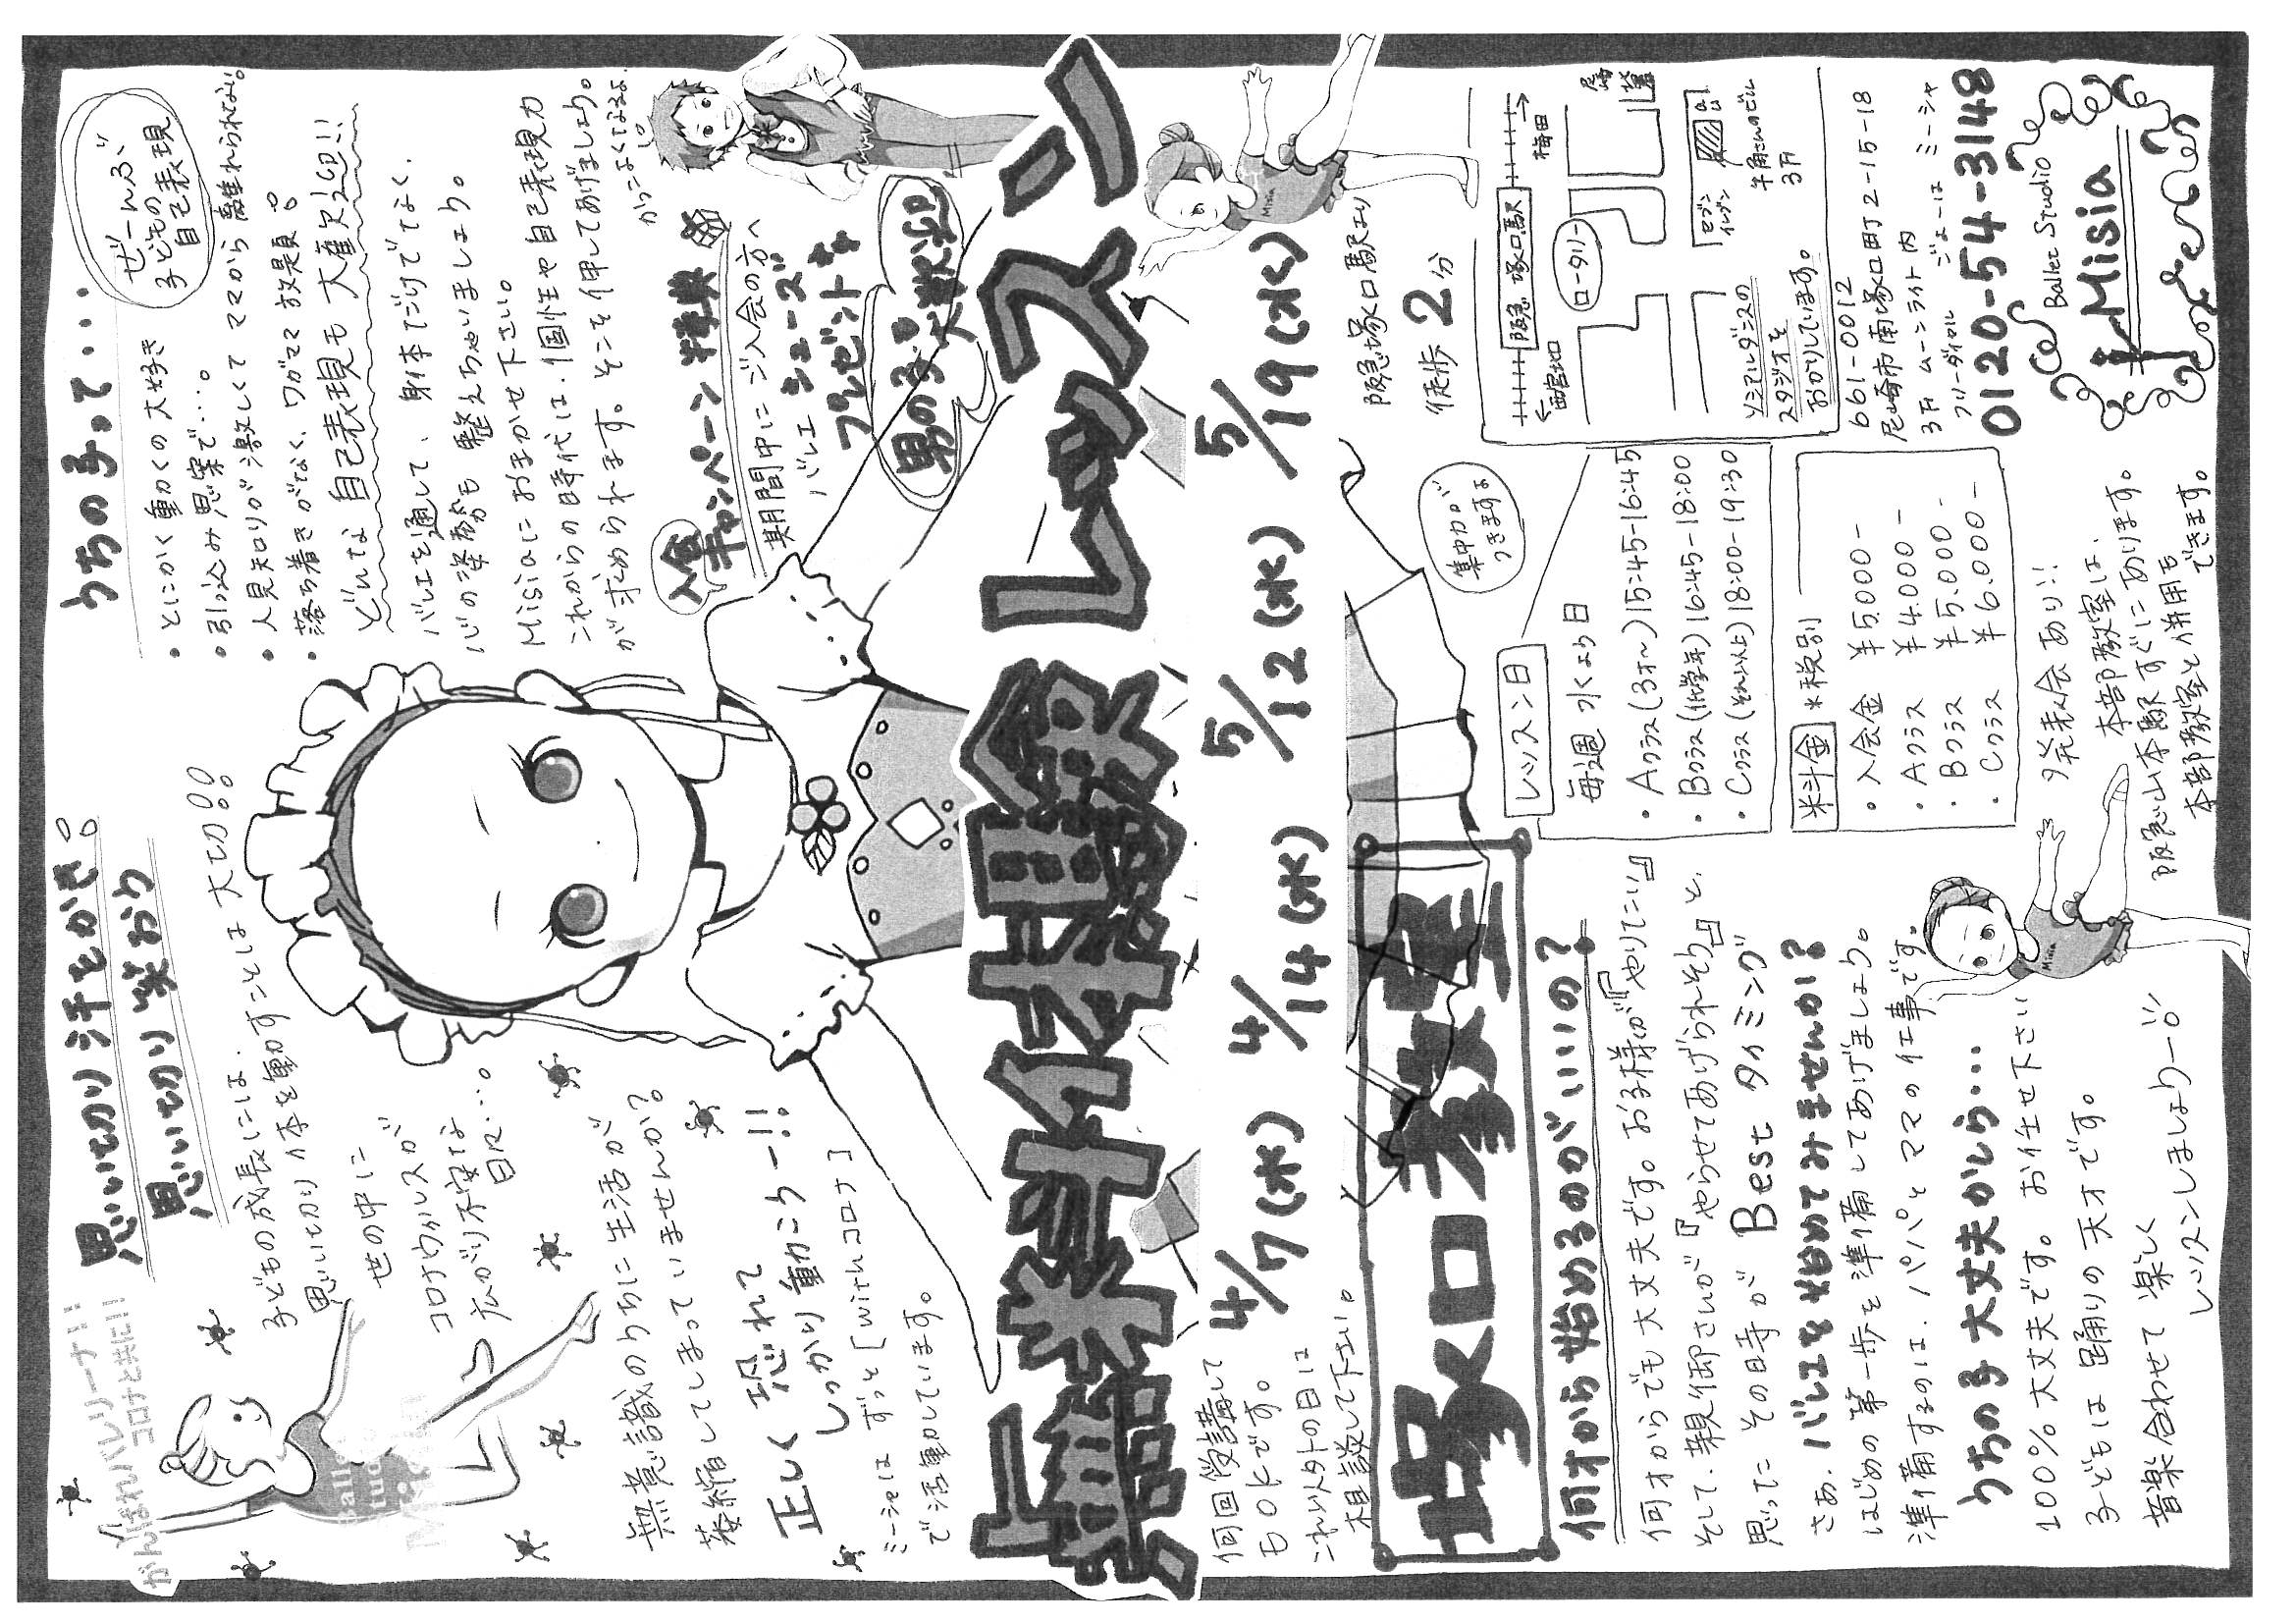 がんばれバレリーナ!!
コロナと共に!!
思い切り汗をかき。
思い切り笑おう
子どもの成長には、
思い切り体を動かすことは大切!!
世の中に
コロナウィルスが
広がり不安な
日々…。
無意識のうちに生活が
萎縮してしまっていませんか?
正しく恐れて
しっかり動こうー!!
ミーシャは ずっと[withコロナ]
で活動しています。
うちの子って・・・・
ぜーんぶ
子どもの
自己表現
・とにかく動くの大好き
・引っ込み思案で…。
・人見知りが激しくて ママから離れられない。
・落ち着きがなく、ワガママ放題。
どんな自己表現も大歓迎!!
バレエを通して、身体だけでなく、
心の姿勢も整えちゃいましょう。
Misiaにおまかせ下さい。
これからの時代は、個性や自己表現力
が求められます。そこを伸してあげましょう。
入会
キャンペーン特典
期間中にご入会の方へ
バレエシューズ
プレゼント
男の子も
大歓迎
かっこよくなるよ
無料体験レッスン
4/7(水) 4/14(水) 5/12(水) 5/19(水)
何回受講して
もOKです。
これ以外の日には
相談して下さい。
塚口教室
何才から始めるのがいいの?
何才からでも大丈夫です。お子様が『やりたい』
そして、親御さんが『やらせてあげられそう』と、
思ったその時が Best タイミング
さあ、バレエを始めてみませんか?
はじめの第一歩を準備してあげましょう。
準備するのは、パパとママの仕事です。
うちの子大丈夫かしら・・・・
100%大丈夫です。お任せ下さい
子どもは 踊りの天才です。
音楽に合わせて 楽しく
レッスンしましょうー!!
阪急塚口駅より
徒歩2分
集中力が
つきますよ
レッスン日
毎週 水よう日
・Aクラス(3才〜)15:45-16:45
・Bクラス(低学年)16:45-18:00
・Cクラス(それ以上)18:00-19:30
料金 *税別
・入会金 ¥5.000-
・Aクラス ¥4.000-
・Bクラス ¥5.000-
・Cクラス ¥6.000-
発表会あり!!
本部教室は、
阪急山本駅すぐにあります。
本部教室と併用も
できます。
西宮北口
阪急 塚口駅
梅田
ロータリー
セブン
イレブン
ソシアルダンスの
スタジオを
おかりしています。
3F
661-0012
尼崎市南塚口町2-15-18
3F ムーンライト内
フリーダイヤル ミーシャ
0120-54-3148
Ballet Studio
Misia